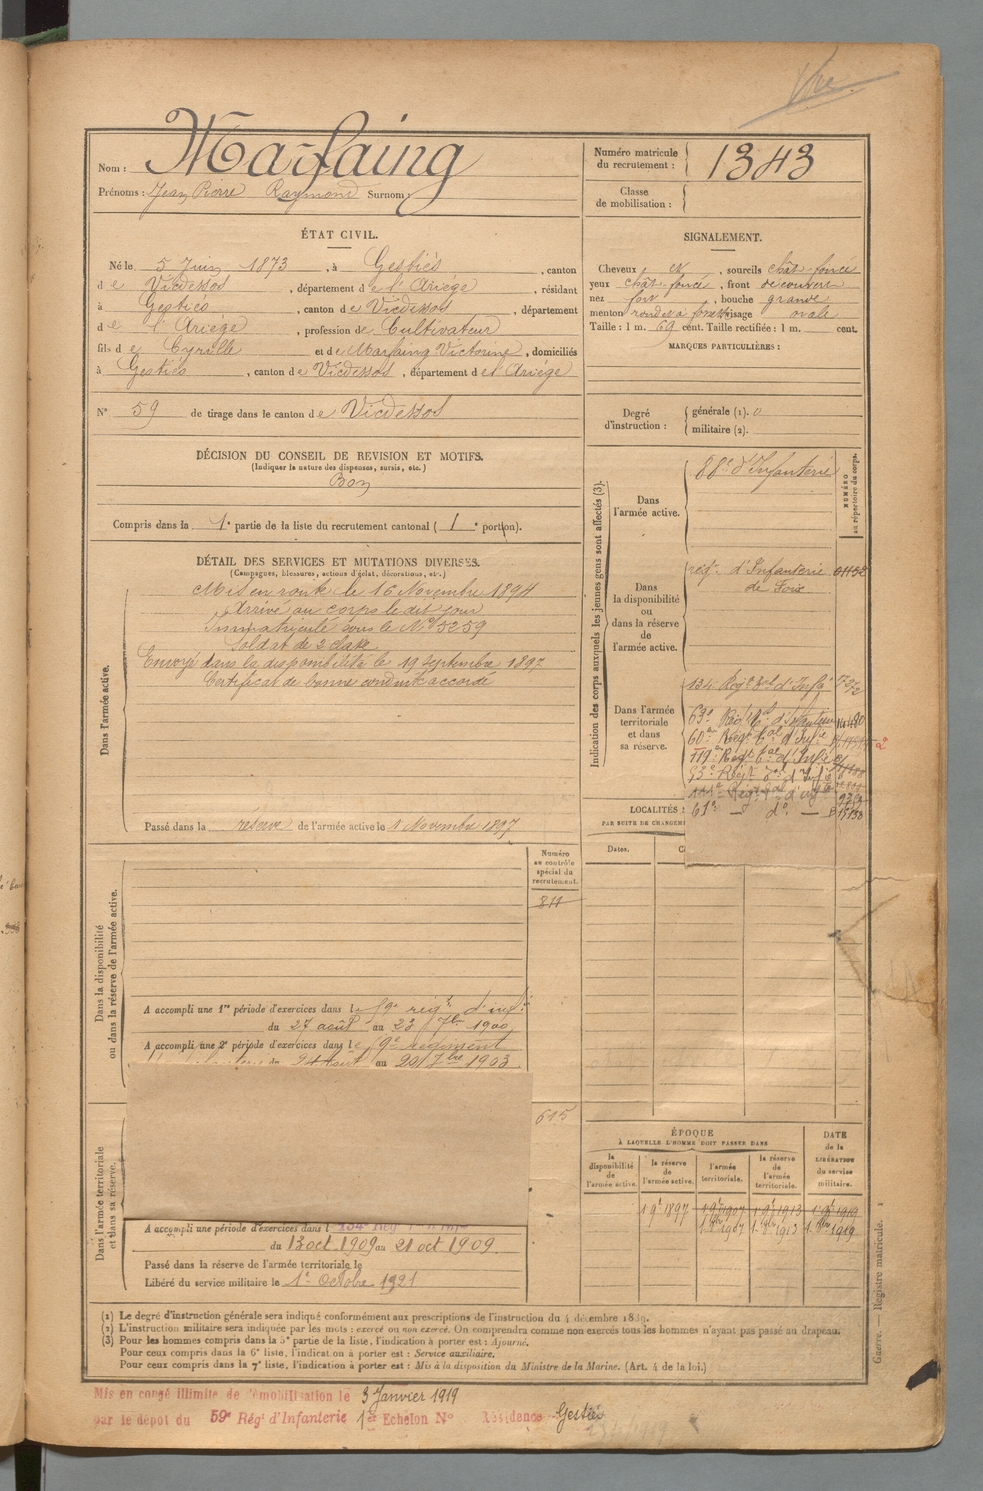 Nom : Marfaing
Prénoms : Jean Pierre Raymond Surnom :
Numéro matricule du recrutement : 1343
Classe de mobilisation :
ÉTAT CIVIL.
Né le 5 Juin 1873, à Gestiés, canton
de Vicdessos, département de l'Ariège, résidant
à Gestiés, canton de Vicdessos, département
de l'Ariège, profession de Cultivateur
fils de Cyrille et de Marfaing Victorine, domiciliés
à Gestiés, canton de Vicdessos, département de l'Ariège
N° 59 de tirage dans le canton de Vicdessos
SIGNALEMENT.
Cheveux ck, sourcils chât. foncé
yeux chât. foncé, front découvert
nez fort, bouche grande
menton rond visage ovale
Taille : 1 m. 69 cent. Taille rectifiée : 1 m. cent.
MARQUES PARTICULIÈRES :
Degré d'instruction : générale (1). 0
militaire (2).
DÉCISION DU CONSEIL DE REVISION ET MOTIFS.
(Indiquer la nature des dispenses, sursis, etc.)
Bon
Compris dans la 1e partie de la liste du recrutement cantonal (1e portion).
DÉTAIL DES SERVICES ET MUTATIONS DIVERSES.
(Campagnes, blessures, actions d'éclat, décorations, etc.)
Dans l'armée active.
Mis en route le 16 Novembre 1894
Arrivé au corps le dit jour
Immatriculé sous le N° 5259
Soldat de 2 classe
Envoyé dans la disponibilité le 19 Septembre 1897
Certificat de bonne conduite accordé
Passé dans la réserve de l'armée active le 1 Novembre 1897
Indication des corps auxquels les jeunes gens sont affectés (3).
NUMÉRO au répertoire du corps.
Dans l'armée active.
88e d'Infanterie
Dans la disponibilité ou dans la réserve de l'armée active.
régt. d'Infanterie 01132
de Foix
Dans l'armée territoriale et dans sa réserve.
134 Régt tal d'Infie
63e Régt tal d'Infanterie
60e Régt tal d'Infie
119e Régt tal d'Infie
53e Régt tal d'Infie
61e — do —
LOCALITÉS
PAR SUITE DE CHANGEM
Dates.
Numéro au contrôle spécial du recrutement.
811
Dans la disponibilité ou dans la réserve de l'armée active.
A accompli une 1re période d'exercices dans le 59e régt d'inf.
du 27 août au 23 7bre 1900
A accompli une 2e période d'exercices dans le 59e régiment
24 août au 20 7bre 1903
615
Dans l'armée territoriale et dans sa réserve.
A accompli une période d'exercices dans l 134e Rég
du 13 oct 1909 au 21 oct 1909
Passé dans la réserve de l'armée territoriale le
Libéré du service militaire le 1e Octobre 1921
ÉPOQUE
À LAQUELLE L'HOMME DOIT PASSER DANS
DATE de la LIBÉRATION du service militaire.
la disponibilité de l'armée active.
la réserve de l'armée active.
l'armée territoriale.
la réserve de l'armée territoriale.
1 9e 1897 1 9e 1907 1 9e 1913 1 9e 1919
1 8bre 1907 1 8bre 1913 1 8bre 1919
(1) Le degré d'instruction générale sera indiqué conformément aux prescriptions de l'instruction du 4 décembre 1889.
(2) L'instruction militaire sera indiquée par les mots : exercé ou non exercé. On comprendra comme non exercés tous les hommes n'ayant pas passé au drapeau.
(3) Pour les hommes compris dans la 5e partie de la liste, l'indication à porter est : Ajourné.
Pour ceux compris dans la 6e liste, l'indication à porter est : Service auxiliaire.
Pour ceux compris dans la 7e liste, l'indication à porter est : Mis à la disposition du Ministre de la Marine. (Art. 4 de la loi.)
Guerre. — Registre matricule. 1
Mis en congé illimité de démobilisation le 3 Janvier 1919
par le dépôt du 59e Régt d'Infanterie 1er Echelon N° Résidence Gestiés